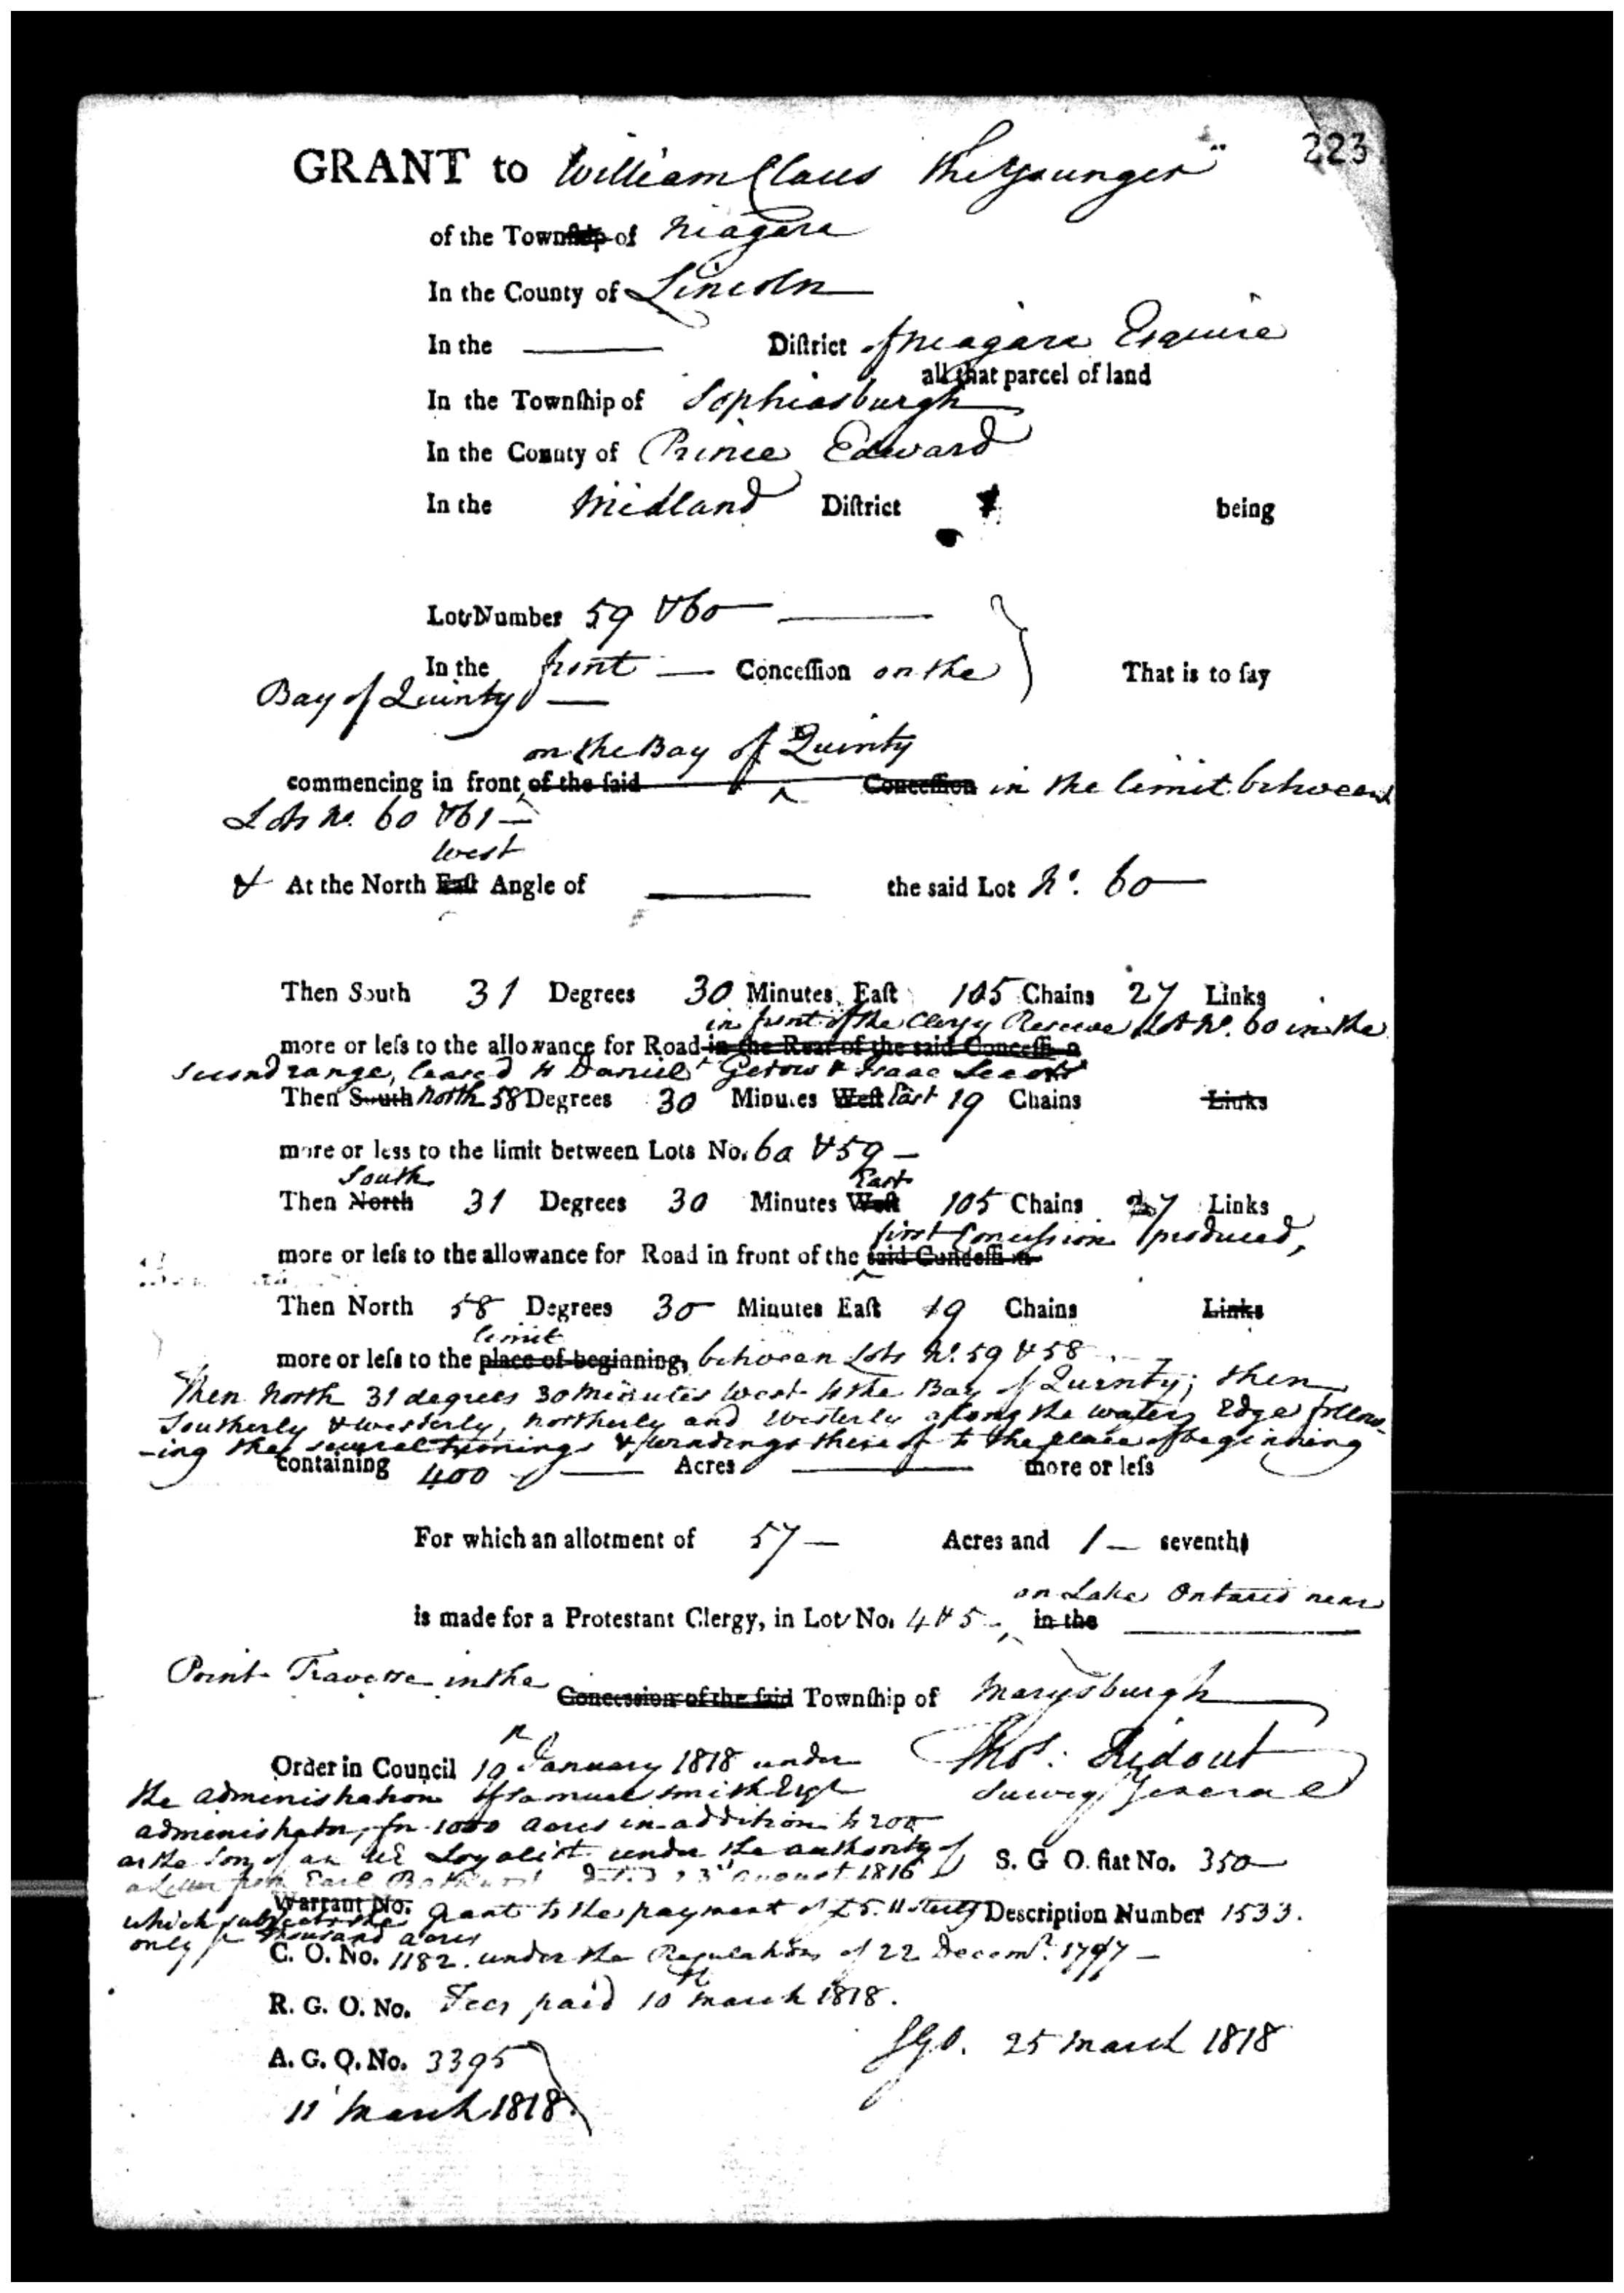 223
GRANT to William Claus the Younger
of the Township of Niagara
In the County of Lincoln
In the — Diſtrict of Niagara Esquire
all that parcel of land
In the Townſhip of Sophiasburgh
In the County of Prince Edward
In the Midland Diſtrict being
Lot Number 59 & 60 —
In the front — Conceſſion on the } That is to ſay
Bay of Quinty —
on the Bay of Quinty
commencing in front of the ſaid Conceſſion in the limit between
Lots No. 60 & 61 —
West
& At the North Eaſt Angle of — the said Lot No. 60 —
Then South 31 Degrees 30 Minutes Eaſt 105 Chains 27 Links
in front of the Clergy Reserve Lot No. 60 in the
more or leſs to the allowance for Road in the Rear of the said Conceſſion
second range, leased to Daniel Gerow & Isaac
Then South North 58 Degrees 30 Minutes Weſt East 19 Chains Links
more or less to the limit between Lots No. 60 & 59 —
South East
Then North 31 Degrees 30 Minutes Weſt 105 Chains 27 Links
first Concession produced,
more or leſs to the allowance for Road in front of the ſaid Conceſſion
Then North 58 Degrees 30 Minutes Eaſt 19 Chains Links
limit
more or leſs to the place of beginning, between Lots No. 59 & 58 —
Then North 31 degrees 30 minutes West to the Bay of Quinty; then
Southerly & westerly, northerly and Westerly along the waters Edge follow-
-ing the several turnings & windings thereof to the place of beginning
containing 400 — Acres — more or leſs
For which an allotment of 57 — Acres and 1 — sevenths
on Lake Ontario near
is made for a Protestant Clergy, in Lot No. 4 & 5 — in the
Point Traverse in the
Concession of the ſaid Townſhip of Marysburgh
Order in Council 19 January 1818 under Thos: Ridout
the administration of Samuel Smith Esqr Survey General
administrator, for 1000 acres in addition to 200
as the Son of an UE Loyalist under the authority of S. G O. fiat No. 350 —
a Letter from Earl Bathurst dated 23d August 1816
Warrant No.
which subjects the grant to the payment of £5.11 Sterlg Description Number 1533.
only for thousand acres
C. O. No. 1182. under the Regulations of 22 Decemr. 1797 —
R. G. O. No. Fees paid 10th March 1818.
SGO. 25 March 1818
A. G. O. No. 3395
11 March 1818.